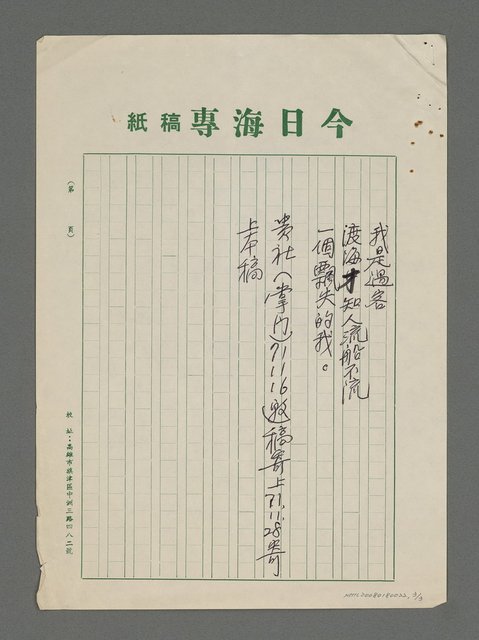 今日海專稿紙
我是過客
渡海才知人流船不流
一個飄失的我。
貴社(掌門)71.11.16邀稿寄上71.11.28寄
上本稿
(第 頁)
校址:高雄市旗津區中洲三路四八二號
NMTL20080180022, 3/3